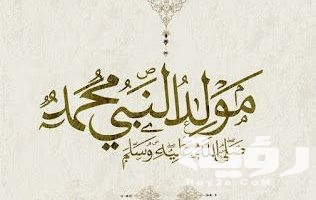 مَوْلِدُ النَّبِيِّ مُحَمَّدٍ
صَلَّى اللهُ عَلَيْهِ وَسَلَّمَ
رؤية